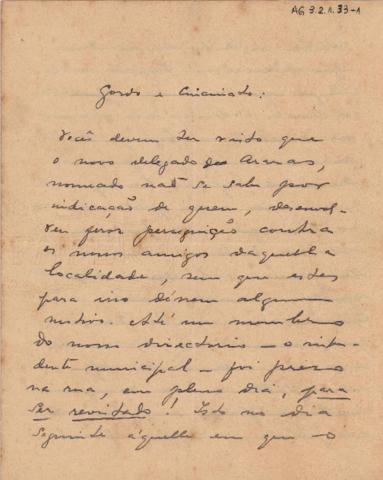 AG 3.2.1.33-1
Gordo e Cincinato:
Vocês devem ter visto que
o novo delegado de Araras,
nomeado não se sabe por
indicação de quem, desenvol-
veu feroz perseguição contra
os nossos amigos daquella
localidade, sem que estes
para isso déssem algum
motivo. Até um membro
do nosso directorio — o inten-
dente municipal — foi preso
na rua, em pleno dia, para
ser revistado! Isto no dia
seguinte áquelle em que o